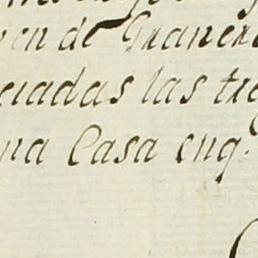 en de Granero
ciadas las tre
na Casa enq.